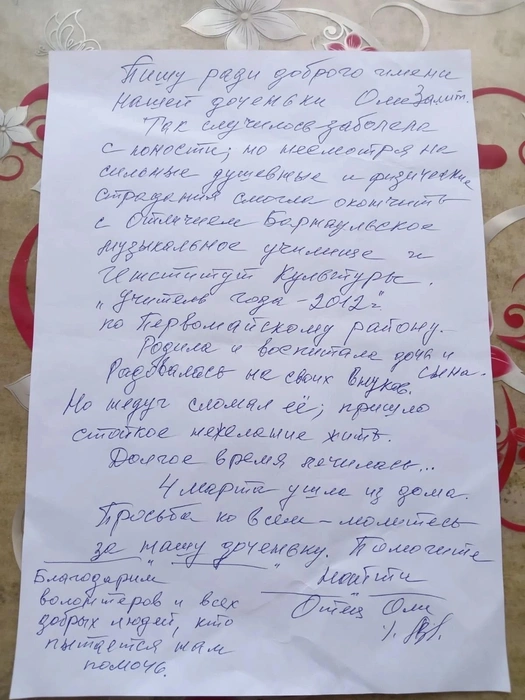 Пишу ради доброго имени
нашей доченьки Оли Залит.
Так случилось заболела
с юности; но несмотря на
сильные душевные и физические
страдания смогла окончить
с отличием Барнаульское
музыкальное училище и
Институт Культуры.
"Учитель года - 2012 г."
по Первомайскому району.
Родила и воспитала дочь и сына.
Радовалась на своих внуков.
Но недуг сломал её; пришло
стойкое нежелание жить.
Долгое время лечилась...
4 марта ушла из дома.
Просьба ко всем - молитесь
за нашу доченьку. Помогите
найти
Благодарим
волонтеров и всех
добрых людей, кто
пытается нам
помочь.
Отец Оли